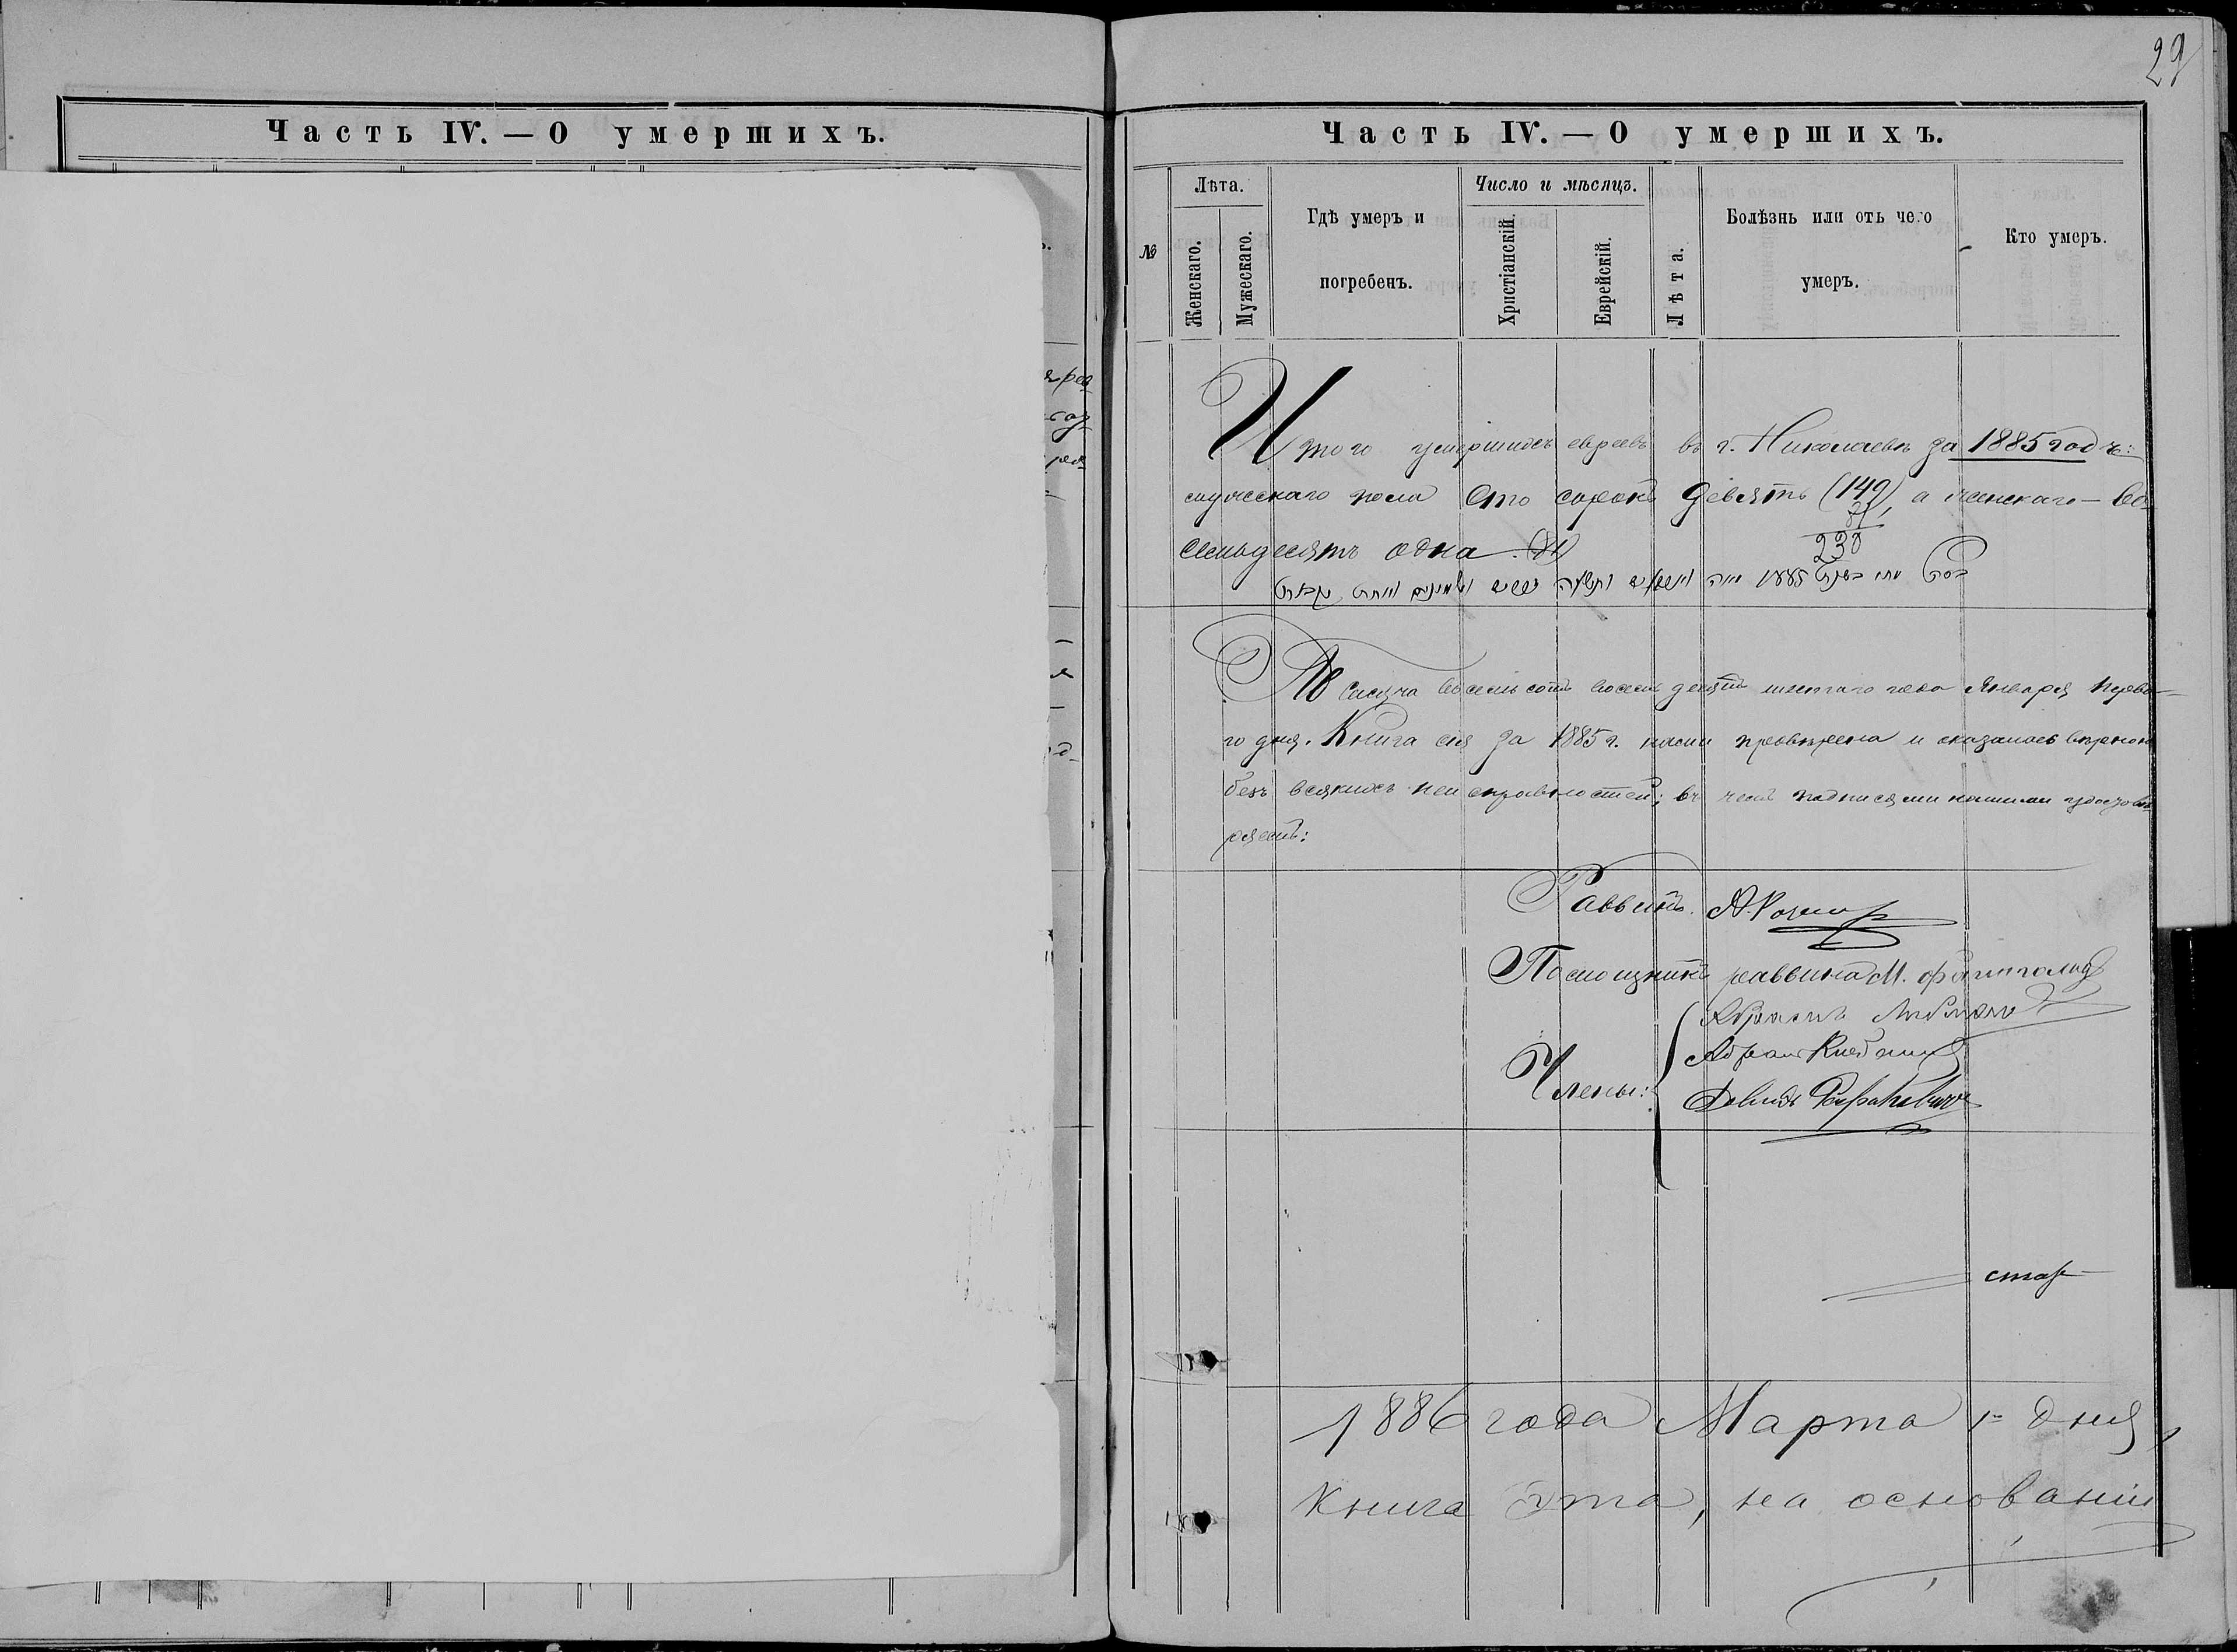 29
Часть IV. — О умершихъ.
Часть IV. — О умершихъ.
№
Лѣта.
Женскаго.
Мужескаго.
Гдѣ умеръ и
погребенъ.
Число и мѣсяцъ.
Христіанскій.
Еврейскій.
Лѣта.
Болѣзнь или отъ чего
умеръ.
Кто умеръ.
Итого умершихъ евреевъ въ г. Николаевѣ за 1885 годъ:
мужескаго пола сто сорокъ девять (149), а женскаго — во-
81
семьдесятъ одна. (81)
230
Тысяча восемьсотъ восемьдесятъ шестаго года Января перва-
го дня. Книга сія за 1885 г. нами провѣрена и оказалась вѣрною
безъ всякихъ неисправностей; въ чемъ подписями нашими удостовѣ-
ряемъ:
Раввинъ
Помощникъ раввина М.
Члены:
Абрамъ
Абрам
Давидъ
1886 года Марта 1 дня,
книга эта, на основаніи